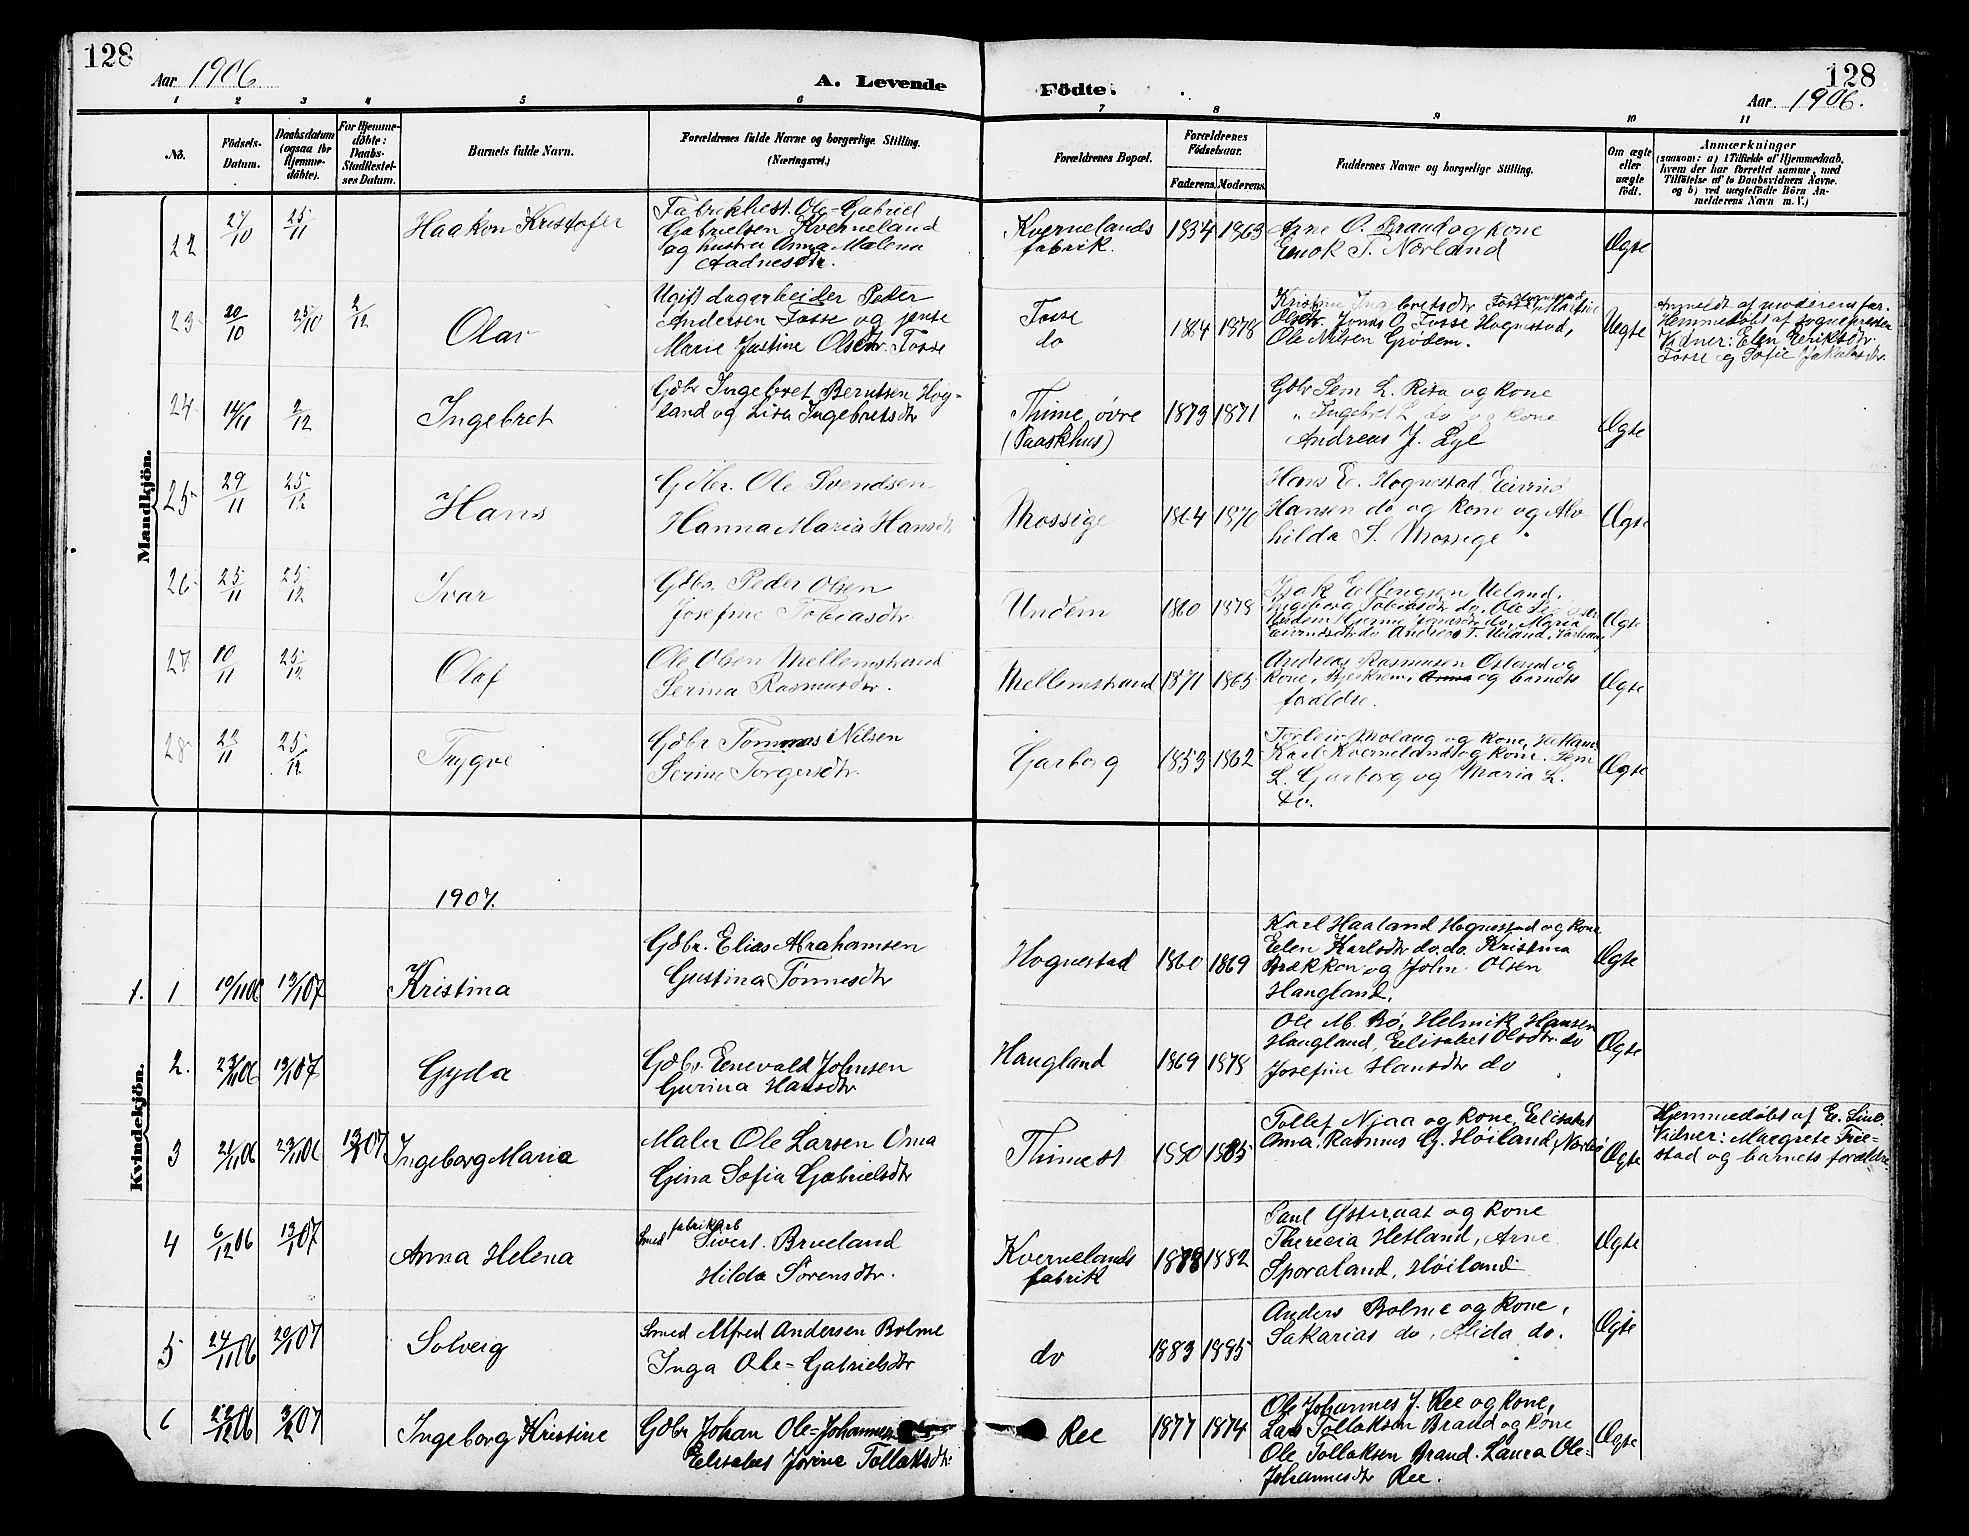 128
Aar 1906
A. Levende
Födte.
128
Aar 1906.
1 2 3 4 5 6 7 8 9 10 11
No.
Födsels-
Datum.
Daabsdatum
(ogsaa for
Hjemme-
döbte).
For Hjemme-
döbte:
Daabs-
Stadfæstel-
ses Datum.
Barnets fulde Navn.
Forældrenes fulde Navne og borgerlige Stilling.
(Næringsvei.)
Forældrenes Bopæl.
Forældrenes
Födselsaar.
Faderens. Moderens.
Faddernes Navne og borgerlige Stilling.
Om ægte
eller
uægte
födt.
Anmærkninger
(saasom: a) i Tilfælde af Hjemmedaab,
hvem der har forrettet samme, med
Tilföielse af to Daabsvidners Navne,
og b) ved uægtefödte Börn An-
melderens Navn m. V.)
Mandkjön.
22 2/10 25/11 Haakon Kristofer
Fabrikbest. Ole-Gabriel
Gabrielsen Kverneland
og hustru Anna Malena
Aadnesdtr.
Kvernelands
fabrik.
1834 1863
Arne O. Braud og kone
Enok T. Norland
Ægte
23 20/10 25/10 2/12 Olav
Ugift dagarbeider Peder
Andersen Fosse og pense
Marie Justine Olsdtr. Fosse
Fosse
do
1864 1878
Kristine Ingebretsdtr
Olsdtr. Jonas O. Fosse Hognestad,
Ole Nilsen Grödem.
Uægte
Anmeldt af moderens far.
Hjemmedøbt af sognepresten
Vidner: Elen Eriksdtr.
Fosse og Sofie Jakobsdtr.
24 14/11 2/12 Ingebret
Gdbr Ingebret Berntsen Høg-
land og Lisa Ingebretsdtr
Thime, øvre
(Paaskhus)
1873 1871
Gdbr Sem L. Risa og kone
" Ingebret L. do og kone
Andreas J. Lye
Ægte
25 29/11 25/12 Hans
Gdbr. Ole Svendsen
Hanna Maria Hansdtr.
Mossige
1864 1870
Hans E. Hognestad, Eivind
Hansen do og kone og Alv-
hilda S. Mossige
Ægte
26 25/11 25/12 Ivar
Gdbr. Peder Olsen
Josefine Tobiasdtr.
Undem
1860 1878
Isak Ellingsen Ueland,
Ingeborg Tobiasdtr do, Ole
Undem,
Eivindsdtr do Andreas T. Ueland,
Ægte
27 10/11 25/12 Olaf
Ole Olsen Mellemstrand
Serina Rasmusdtr.
Mellemstrand
1871 1865
Andreas Rasmusen Osland og
kone, Bjerkrem, og barnets
forældre.
Ægte
28 22/11 25/12 Trygve
Gdbr Tommas Nilsen
Serine Torgersdtr.
Garborg
1853 1862
Torleiv Molaug og kone, Hetland
Karl Kverneland og kone. Sem
L. Garborg og Maria L.
do.
Ægte
1907.
Kvindekjön.
1. 1 19/11 06 13/1 07 Kristina
Gdbr. Elias Abrahamsen
Gustina Tönnesdtr
Hognestad
1860 1869
Karl Haaland Hognestad og kone
Elen Karlsdtr do. do. Kristina
Brækken og John Olsen
Haugland.
Ægte
2. 23/11 06 13/1 07 Gyda
Gdbr. Enevald Johnsen
Gurina Hansdtr
Haugland
1869 1878
Ole M. Bö, Helmik Hansen
Haugland, Elisabet Olsdtr. do
Josefine Hansdtr do
Ægte
3 21/11 06 23/11 06 13/1 07 Ingeborg Maria
Maler Ole Larsen Oma
Gina Sofia Gabrielsdtr
Thime st
1880 1885
Tollef Njaa og kone, Elisabet
Oma, Rasmus G. Höiland, Nærbø
Ægte
Hjemmedöbt af E.
Vidner: Margrete Tne-
stad og barnets forældre
4 6/12 06 13/1 07 Anna Helena
Smed fabrikarb Sivert. Brueland
Hilda Sörensdtr.
Kvernelands
fabrik
1882
Paul Østeraat og kone
Therecia Hetland, Arne
Sporaland, Höiland
Ægte
5 24/11 06 20/1 07 Solveig
Smed Alfred Andersen Bolme
Inga Ole-Gabrielsdtr
do
1883 1885
Anders Bolme og kone,
Sakarias do, Alida do.
Ægte
6 22/12 06 3/2 07 Ingeborg Kristine
Gdbr Johan Ole-Johannes
Elisabet Jorine Tollaksdtr.
Ree
1877 1874
Ole Johannes J. Ree og kone,
Lars Tollaksen Braud og kone
Ole Tollaksen Braud. Laura Ole-
Johannesdtr Ree.
Ægte